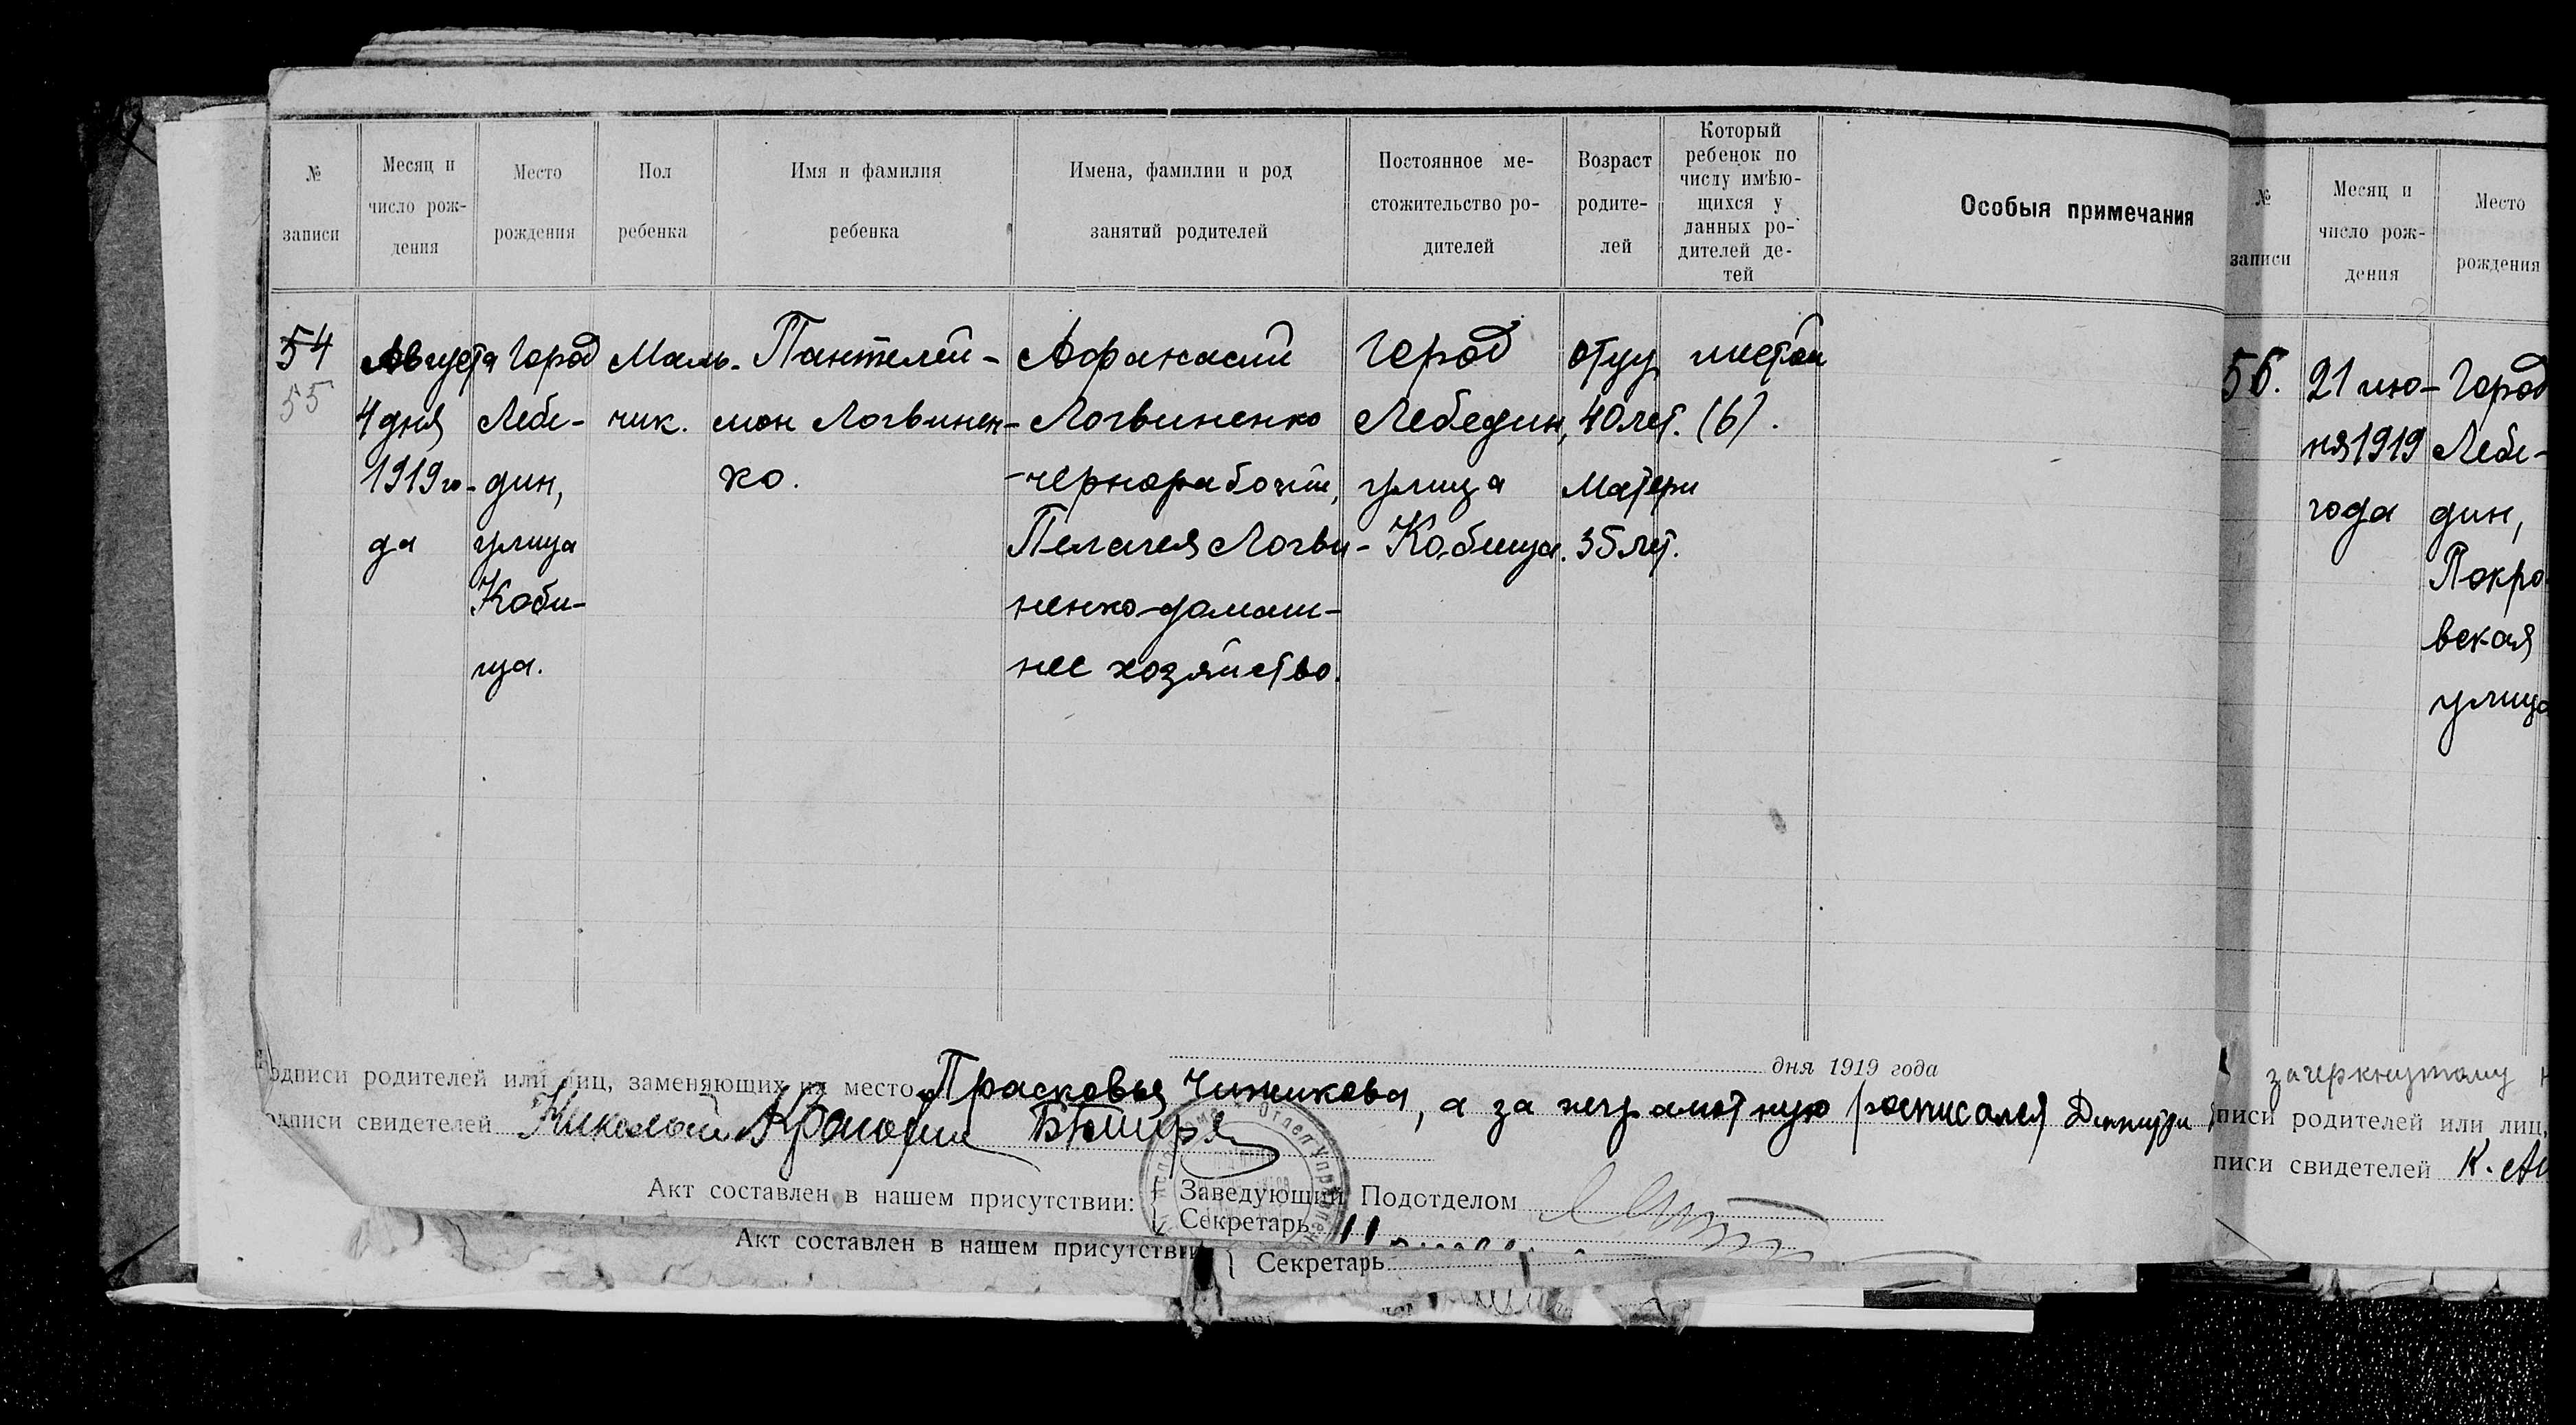 № записи
Месяц и число рождения
Место рождения
Пол ребенка
Имя и фамилия ребенка
Имена, фамилии и род занятий родителей
Постоянное местожительство родителей
Возраст родителей
Который ребенок по числу имѣющихся у данных родителей детей
Особыя примечания
54
55
Августа
4 дня
1919 го-
да
Город
Лебе-
дин,
улица
Коби-
ца.
Маль-
чик.
Пантелей-
мон Логвинен-
ко.
Афанасий
Логвиненко
-чернорабочий,
Пелагея Логви-
ненко-домаш-
нее хозяйство.
Город
Лебедин,
улица
Кобица.
отцу
40 лет.
матери
35 лет.
шестой
(6).
дня 1919 года
одписи родителей или лиц, заменяющих их место Прасковья Чижикова, а за неграмотную росписался Димитри
одписи свидетелей Николай
Акт составлен в нашем присутствии: { Заведующий Подотделом
Секретарь
Акт составлен в нашем присутствии
{ Секретарь
№ записи
Месяц и число рождения
Место рождения
56.
21 ию-
ня 1919
года
Город
Лебе-
дин,
Покро
вская
улица
зачеркнутому
писи родителей или лиц,
писи свидетелей К.